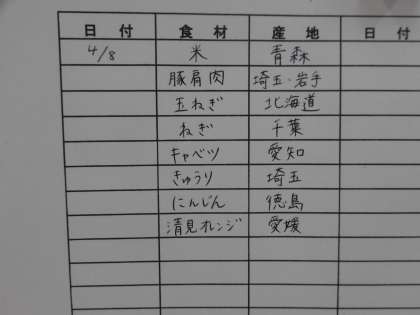 日付 食材 産地 日付
4/8 米 青森
豚肩肉 埼玉・岩手
玉ねぎ 北海道
ねぎ 千葉
キャベツ 愛知
きゅうり 埼玉
にんじん 徳島
清見オレンジ 愛媛